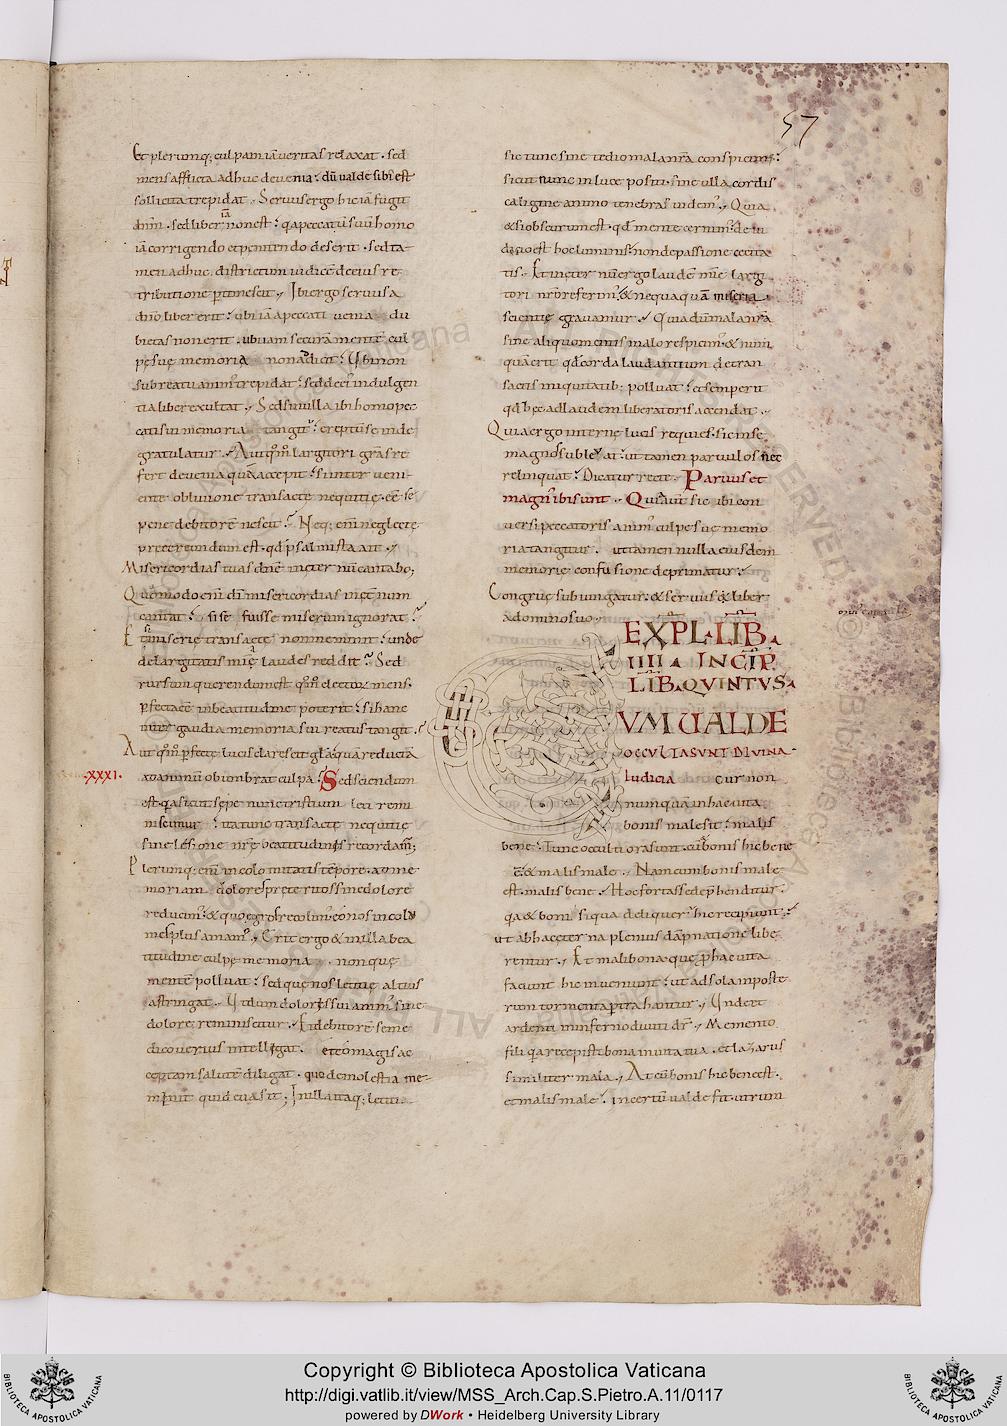 57
Et plerumq; culpam iā veritas relaxat . sed
mens afflicta adhuc de venia dū valde sibi est
sollicita trepidat . Servus ergo hic iā fugit
dnm . sed liber non est qa peccatū suū homo
iā corrigendo et penitendo deserit . sed ta-
men adhuc districtum iudicē de eius re
tributione ptimescit . Ibi ergo servus a
dno liber erit ubi iā peccati venia du
bietas non erit . ubi iam securā mentē cul
pe suę memoria non addicit Ubi non
sub reatu anim' trepidat sed de ei' indulgen
tia liber exultat . Sed si nulla ibi homo pec
cati sui memoria tangit' ereptū se unde
gratulatur . Aut qm largitori gras re
fert de venia quā accepit si inter veni
ente oblivione transacte nequitię eē se
pene debitorē nescit Neq; eni neglecte
pretereundum est . qd psalmista ait .
Misericordias tuas dne in ęternū cantabo;
Quomodo eni di misericordias in ętnum
cantat si se fuisse miserum ignorat
Et si miserie transacte non meminit unde
de largitatis mię laudes reddit Sed
rursum querendum est qm elector mens
pfecta eē in beatitudine poterit si hanc
inter gaudia memoria sui reatus tangit
Aut qm pfecte lucis clarescit gla quā reducta
·XXXI· ad animū obionbrat culpa Sed sciendum
est qa sicut sepe nunc tristium leti remi
niscimur ita tunc transacte nequitię
sine lesione nre beatitudinis recordam;
Plerumq; eni incolomitatis tēpore ad me
moriam dolores preteritos sine dolore
reducim' & quo ęgros recolim' eo nos incolu
mes plus amam' Erit ergo & in illa bea
titudine culpę memoria non quę
mentē polluat sed que nos letitię altius
astringat . Ut dum doloris sui anim' sine
dolore reminiscitur . & debitorē se me
dico verius intellegat . et eo magis ac
ceptam salutē diligat . quo de molestia me-
minit quid evasit; In illa itaq; letitia
sic tunc sine tedio mala nra conspicim'
sicut nunc in luce positi . sine ulla cordis
caligine animo tenebras videm' Quia
& si obscurum est . qd mente cernim' de iu
ditio est hoc luminis non de passione cecita
tis . Et in ęter nū ergo laudē mię largi
tori nro referim' & nequaquā miserię
scientię gravamur . Quia dū mala nra
sine aliquo mentis malo respicim' & num
quā erit qd corda laudantium de tran
sactis iniquitatib; polluat et semp erit
qd hec ad laudem liberatoris accendat .
Quia ergo internę lucis requies . sic in se
magnos sublevat ut tamen parvulos nec
relinquat Dicatur recte Parvus et
magn' ibi sunt . Quāvis sic ibi con
versi peccatoris anim' culpe suę memo
ria tangitur . ut tamen nulla eiusdem
memorię confusione deprimatur .
Congruę subiungatur & servus & liber
a domino suo
EXPL· LIB·
IIII· INCIP·
LIB· QUINTUS·
CUM VALDE
OCCULTA SUNT DIVINA
Iudicia cur non
numquā in hac vita
bonis male sit malis
bene Tunc occultiora sunt cū & bonis hic bene
ē & malis male . Nam cum bonis male
est . malis bene . Hoc fortasse dephenditur .
qa & boni si qua deliquer' hic recipiunt
ut ab hac ęterna plenius dāpnatione libe
rentur . Et mali bona que p hac vita
faciunt hic inveniunt ut ad sola in poste
rum tormenta ptrahantur . Unde et
ardenti in inferno diviti dr . Memento
fili qa recepisti bona in vita tua . et lazarus
similiter mala . At cū bonis hic bene est .
et malis male incertū valde fit . utrum
Copyright © Biblioteca Apostolica Vaticana
http://digi.vatlib.it/view/MSS_Arch.Cap.S.Pietro.A.11/0117
powered by DWork • Heidelberg University Library
BIBLIOTECA APOSTOLICA VATICANA
BIBLIOTECA APOSTOLICA VATICANA